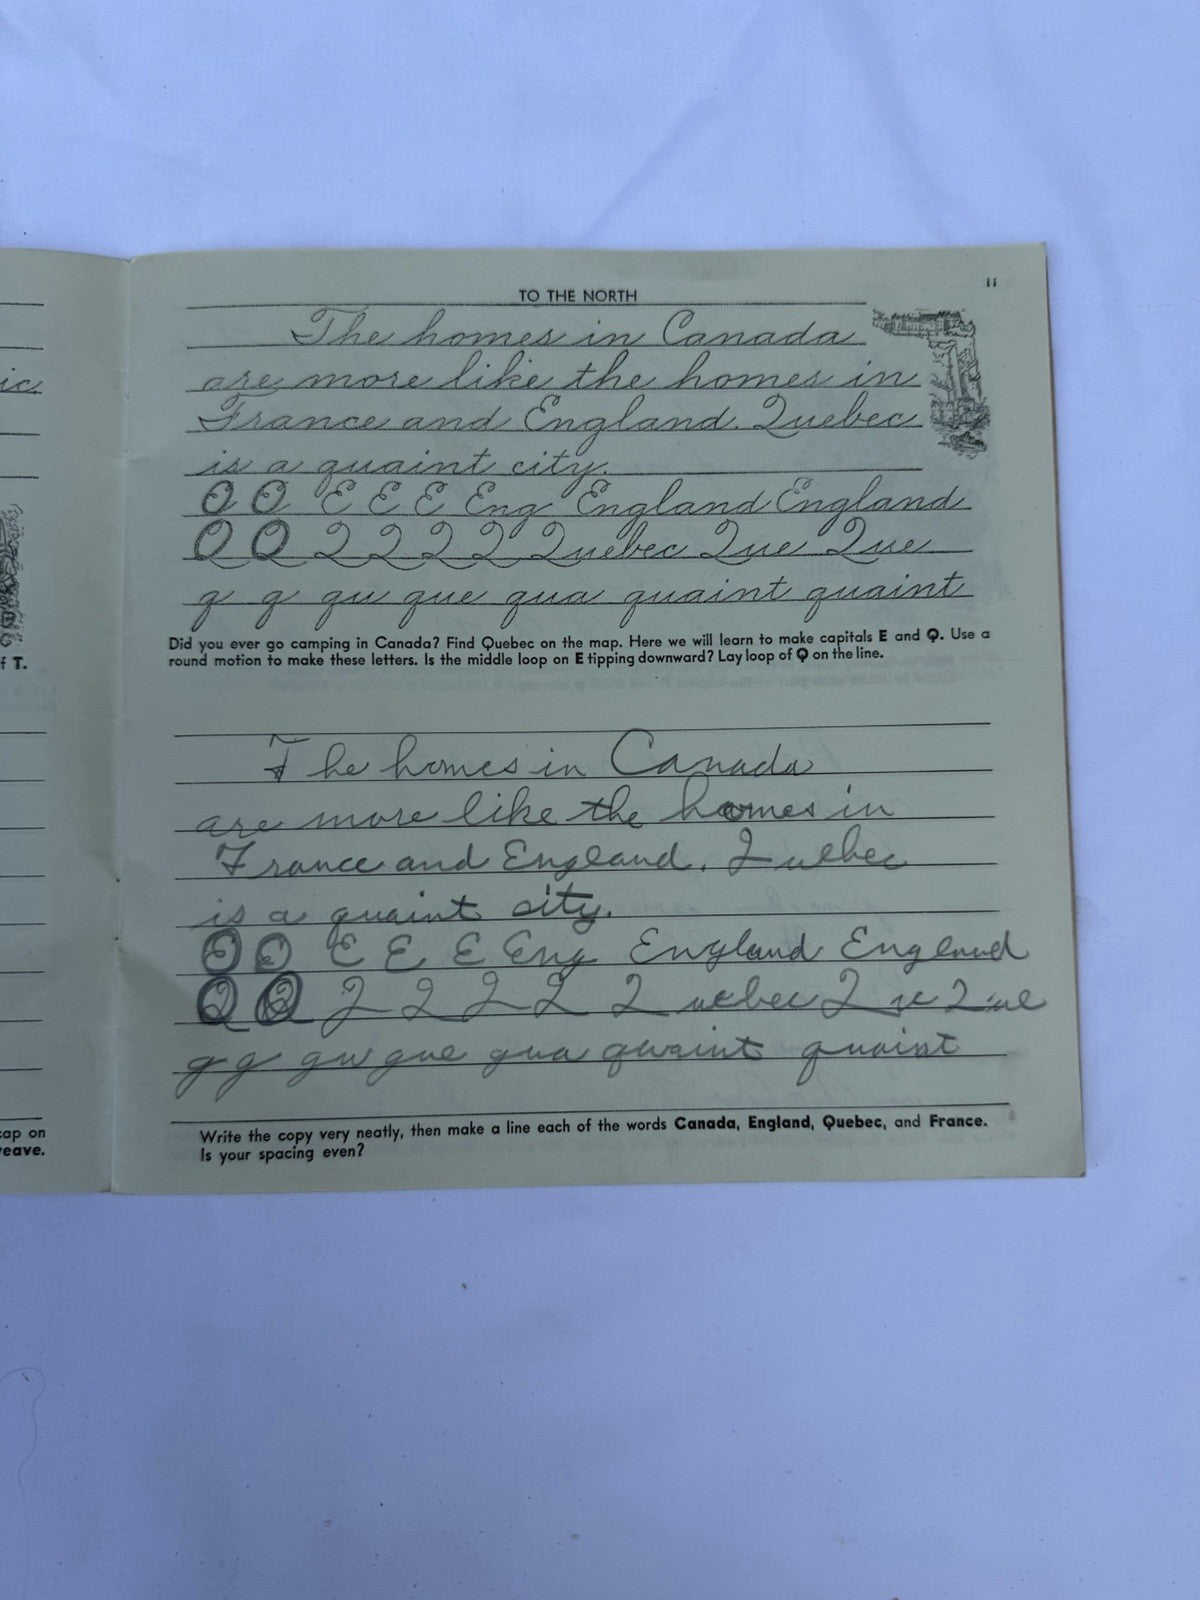 ic.
f T.
cap on
weave.
TO THE NORTH
11
The homes in Canada
are more like the homes in
France and England. Quebec
is a quaint city.
O O E E E Eng England England
O O Q Q Q Q Quebec Que Que
q q qu que qua quaint quaint
Did you ever go camping in Canada? Find Quebec on the map. Here we will learn to make capitals E and Q. Use a
round motion to make these letters. Is the middle loop on E tipping downward? Lay loop of Q on the line.
The homes in Canada
are more like the homes in
France and England. Quebec
is a quaint city.
E E E E E Eng England England
Q Q Q Q Q Q Quebec Que Que
q q qu que qua quaint quaint
Write the copy very neatly, then make a line each of the words Canada, England, Quebec, and France.
Is your spacing even?